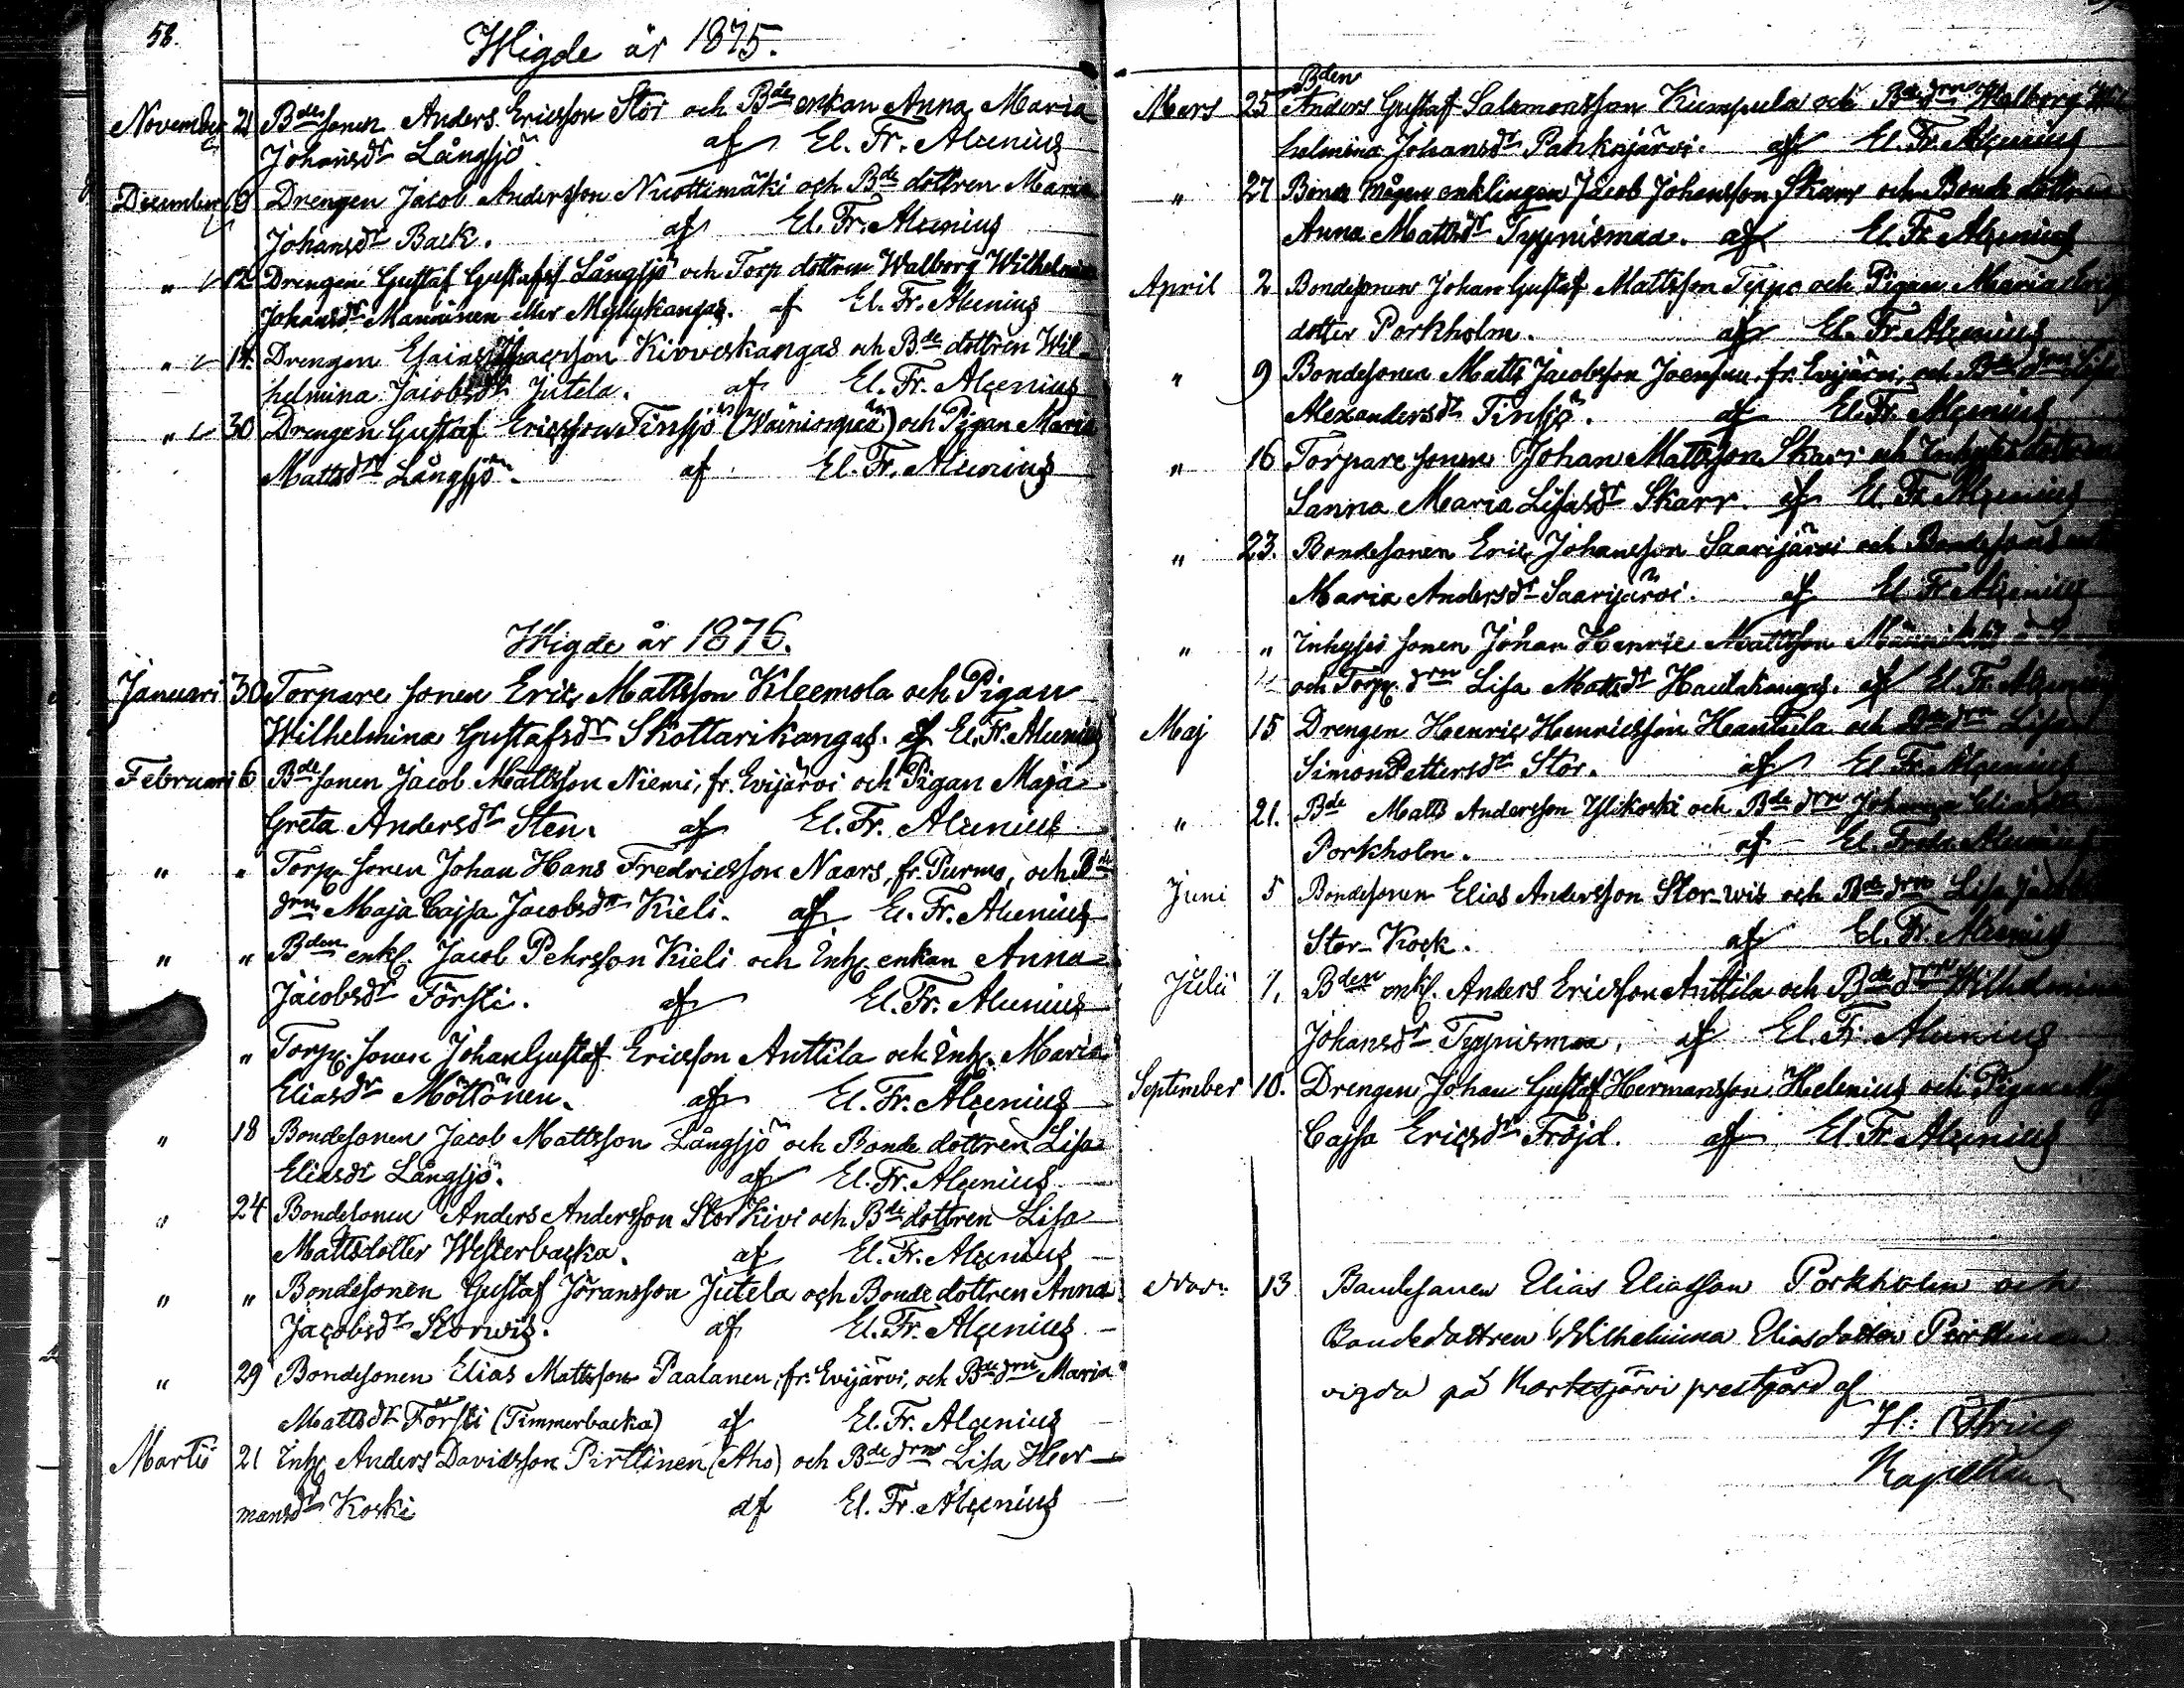 58.
Wigde år 1875.
November 21 Bde sonen Anders Ericsson Stor och Bde enkan Anna Maria
Johansdr Långsjö. af El. Fr. Alcenius
December Drengen Jacob Andersson Nuottimäki och Bde dottren Maria
Johansdr Back. af El. Fr. Alcenius
" 12 Drengen Gustaf Gustafss Långsjö och Torp dottren Walborg Wilhelmina
Johansdr Manninen eller Myllykangas. af El. Fr. Alcenius
" 14. Drengen Esaias Isacsson Kivveskangas och Bde dottren Wil-
helmina Jacobsdr Jutela. af El. Fr. Alcenius
" 30 Drengen Gustaf Ericsson Finsjö (Wäinionpää) och Pigan Maria
Mattsdr Långsjö. af El. Fr. Alcenius
Wigde år 1876.
Januari 30 Torpare sonen Eric Mattsson Kleemola och Pigan
Wilhelmina Gustafsdr Skottarikangas. af El. Fr. Alcenius
Februari 6 Bde sonen Jacob Mattsson Niemi, fr. Evijärvi och Pigan Maja
Greta Andersdr Sten. af El. Fr. Alcenius
" " Torp. sonen Johan Hans Fredricsson Naars, fr. Purmo, och Bde
drn Maja Cajsa Jacobsdr Kieli. af El. Fr. Alcenius
" " Bden enkl. Jacob Pehrsson Kieli och Inh. enkan Anna
Jacobsdr Försti. af El. Fr. Alcenius
" Torp. sonen Johan Gustaf Ericsson Anttila och Inh. Maria
Eliasdr Möttönen. af El. Fr. Alcenius
" 18 Bondesonen Jacob Mattsson Långsjö och Bonde dottren Lisa
Eliasdr Långsjö. af El. Fr. Alcenius
" 24 Bondesonen Anders Andersson Stor Kivi och Bde dottren Lisa
Mattsdotter Westerbacka. af El. Fr. Alcenius
" " Bondesonen Gustaf Jöransson Jutela och Bonde dottren Anna
Jacobsdr Storwis. af El. Fr. Alcenius
" 29 Bondesonen Elias Mattsson Paalanen, fr. Evijärvi, och Bde drn Maria
Mattsdr Försti (Timmerbacka) af El. Fr. Alcenius
Martii 21 Inh. Anders Davidsson Pirttinen (Aho) och Bde drn Lisa Her-
mansdr Koski af El. Fr. Alcenius
Bden
Mars 25 Anders Gustaf Salomonsson Kumpula och Bde drn Walborg Wil
helmina Johansdr Pahkajärvi. af El. Fr. Alcenius
" 27 Bonde mågen enklingen Jacob Johansson Skarr och Bonde dottren
Anna Mattsdr Tyynismaa. af El. Fr. Alcenius
April 2 Bondesonen Johan Gustaf Mattsson Teppo och Pigan Maria
dotter Porkholm. af El. Fr. Alcenius
" 9 Bondesonen Matts Jacobsson Joensuu, fr. Evijärvi, och Bde drn
Alexandersdr Finsjö. af El. Fr. Alcenius
" 16 Torpare sonen Johan Mattsson Skarr och Inhyses dottren
Sanna Maria Lisasdr Skarr. af El. Fr. Alcenius
" 23. Bondesonen Eric Johansson Saarijärvi och
Maria Andersdr Saarijärvi. af El. Fr. Alcenius
" " Inhyses sonen Johan Henric Mattsson
och Torp. drn Lisa Mattsdr Hautakangas. af El. Fr. Alcenius
Maj 15 Drengen Henric Henricsson Hautula och Bde drn Lisa
Simon Pettersdr Stor. af El. Fr. Alcenius
" 21. Bde Matts Andersson Ylikoski och Bde drn Johanna
Porkholm. af El. Fredr. Alcenius
Juni 5 Bondesonen Elias Andersson Stor-wis och Bde drn Lisa
Stor-Kock. af El. Fr. Alcenius
Julii 1. Bden enkl. Anders Ericsson Anttila och Bde drn Wilhelmina
Johansdr Tyynismaa. af El. Fr. Alcenius
September 10. Drengen Johan Gustaf Hermansson Helenius och Pigan
Cajsa Ericsdr Fröjd. af El. Fr. Alcenius
Nov. 13 Bondesonen Elias Eliasson Porkholm och
Bondedottren Wilhelmina Eliasdotter Pirttinen
vigda på Kortesjärvi prestgård af
Kapellan